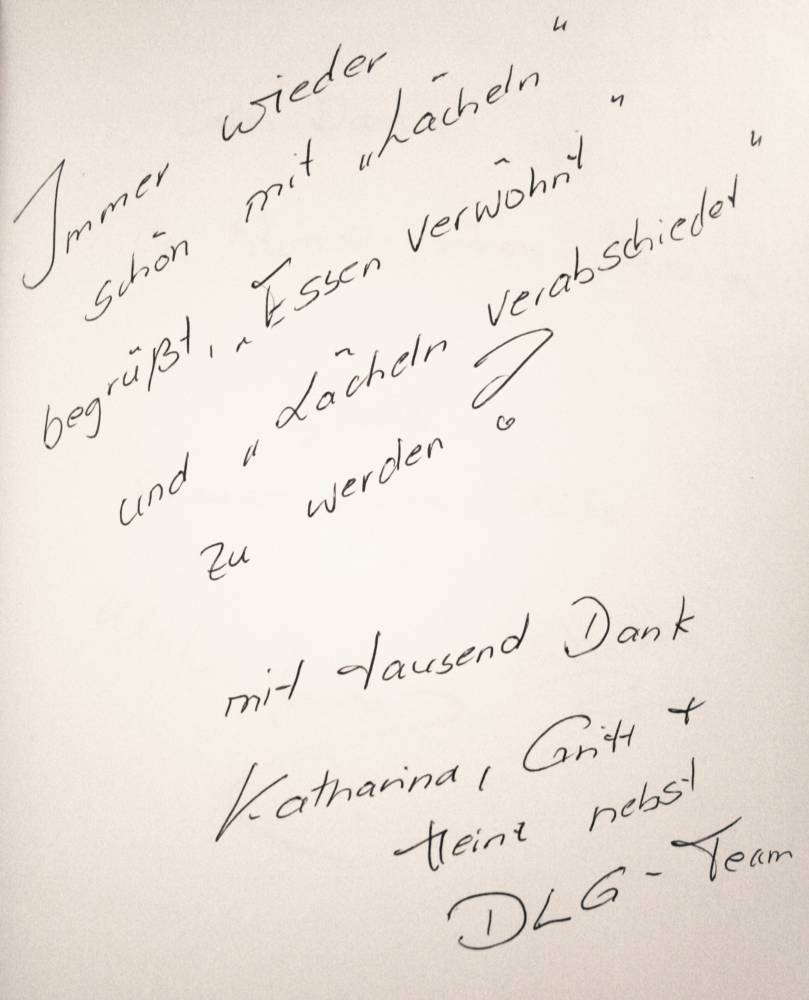 Immer wieder
schön mit „Lächeln"
begrüßt, „Essen verwöhnt"
und „Lächeln verabschiedet"
zu werden!
mit tausend Dank
Katharina, Gritt +
Heinz nebst
DLG-Team